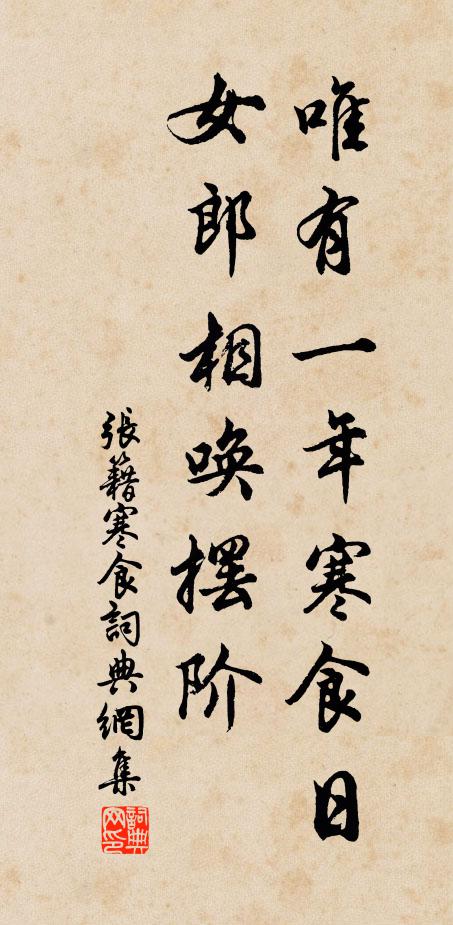 唯有一年寒食日
女郎相唤摆阶
張籍寒食詞典網集
詞典网印